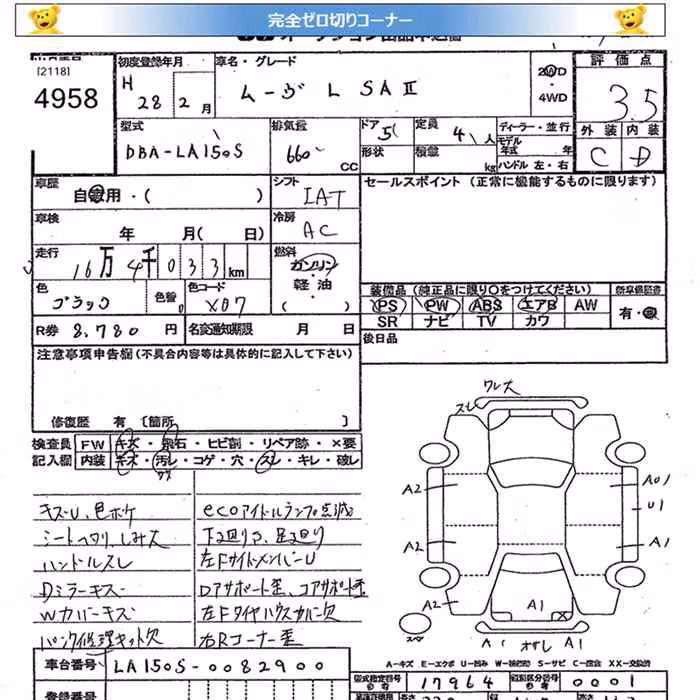 完全ゼロ切りコーナー
[2118]
4958
初度登録年月
H 28年 2月
車名・グレード
ムーヴ L SAⅡ
2WD
4WD
評価点
3.5
外装 内装
C D
型式
DBA-LA150S
排気量
660 CC
ドア 5
形状
定員 4人
積載 kg
ディーラー・並行
モデル年式 年
ハンドル 左・右
車歴
自家用・( )
シフト
IAT
セールスポイント (正常に機能するものに限ります)
車検
年 月( 日)
冷房
AC
走行
16万4千033km
燃料
ガソリン
軽・油
( )
色
ブラック
色替
色コード
X07
装備品 (純正品に限り○をつけてください)
新車保証書
PS PW ABS エアB AW
SR ナビ TV カワ
有・無
R券 8,780 円
名変通知期限 月 日
後日品
注意事項申告欄 (不具合内容等は具体的に記入して下さい)
修復歴 有 [箇所 ]
検査員
記入欄
FW キズ・飛石・ヒビ割・リペア跡・×要
内装 キズ・汚レ・コゲ・穴・スレ・キレ・破レ
キズ・U、色ボケ
シートヘタリ、シミ大
ハンドルスレ
Dミラーキズ
Wカバーキズ
パンク修理キット欠
ecoアイドルランプ点滅
下回りサ、足回り
左FサイドメンバーU
Dアサポート歪、コアサポート歪
左Fタイヤハウスカバー欠
右Rコーナー歪
ワレ大
スレ
A2
A01
U1
A2
A1
A2
A1
スマ
A1
オサレ
A1
A-キズ E-エクボ U-凹み W-補修跡 S-サビ C-腐食 XX-交換済
車台番号
LA150S-0082900
型式指定番号
参考
17964
類別区分番号
参考
0001
登録番号